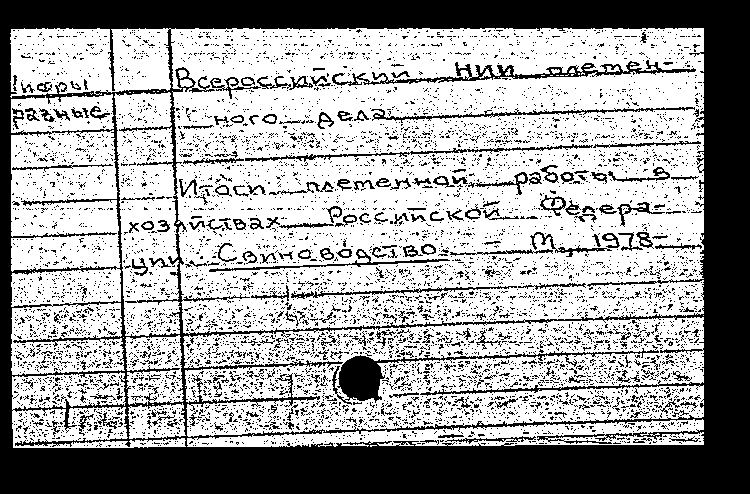 Шифры
разные
Всероссийский НИИ племен-
ного дела
Итоги племенной работы в
хозяйствах Российской Федера-
ции. Свиноводство. - М., 1978-